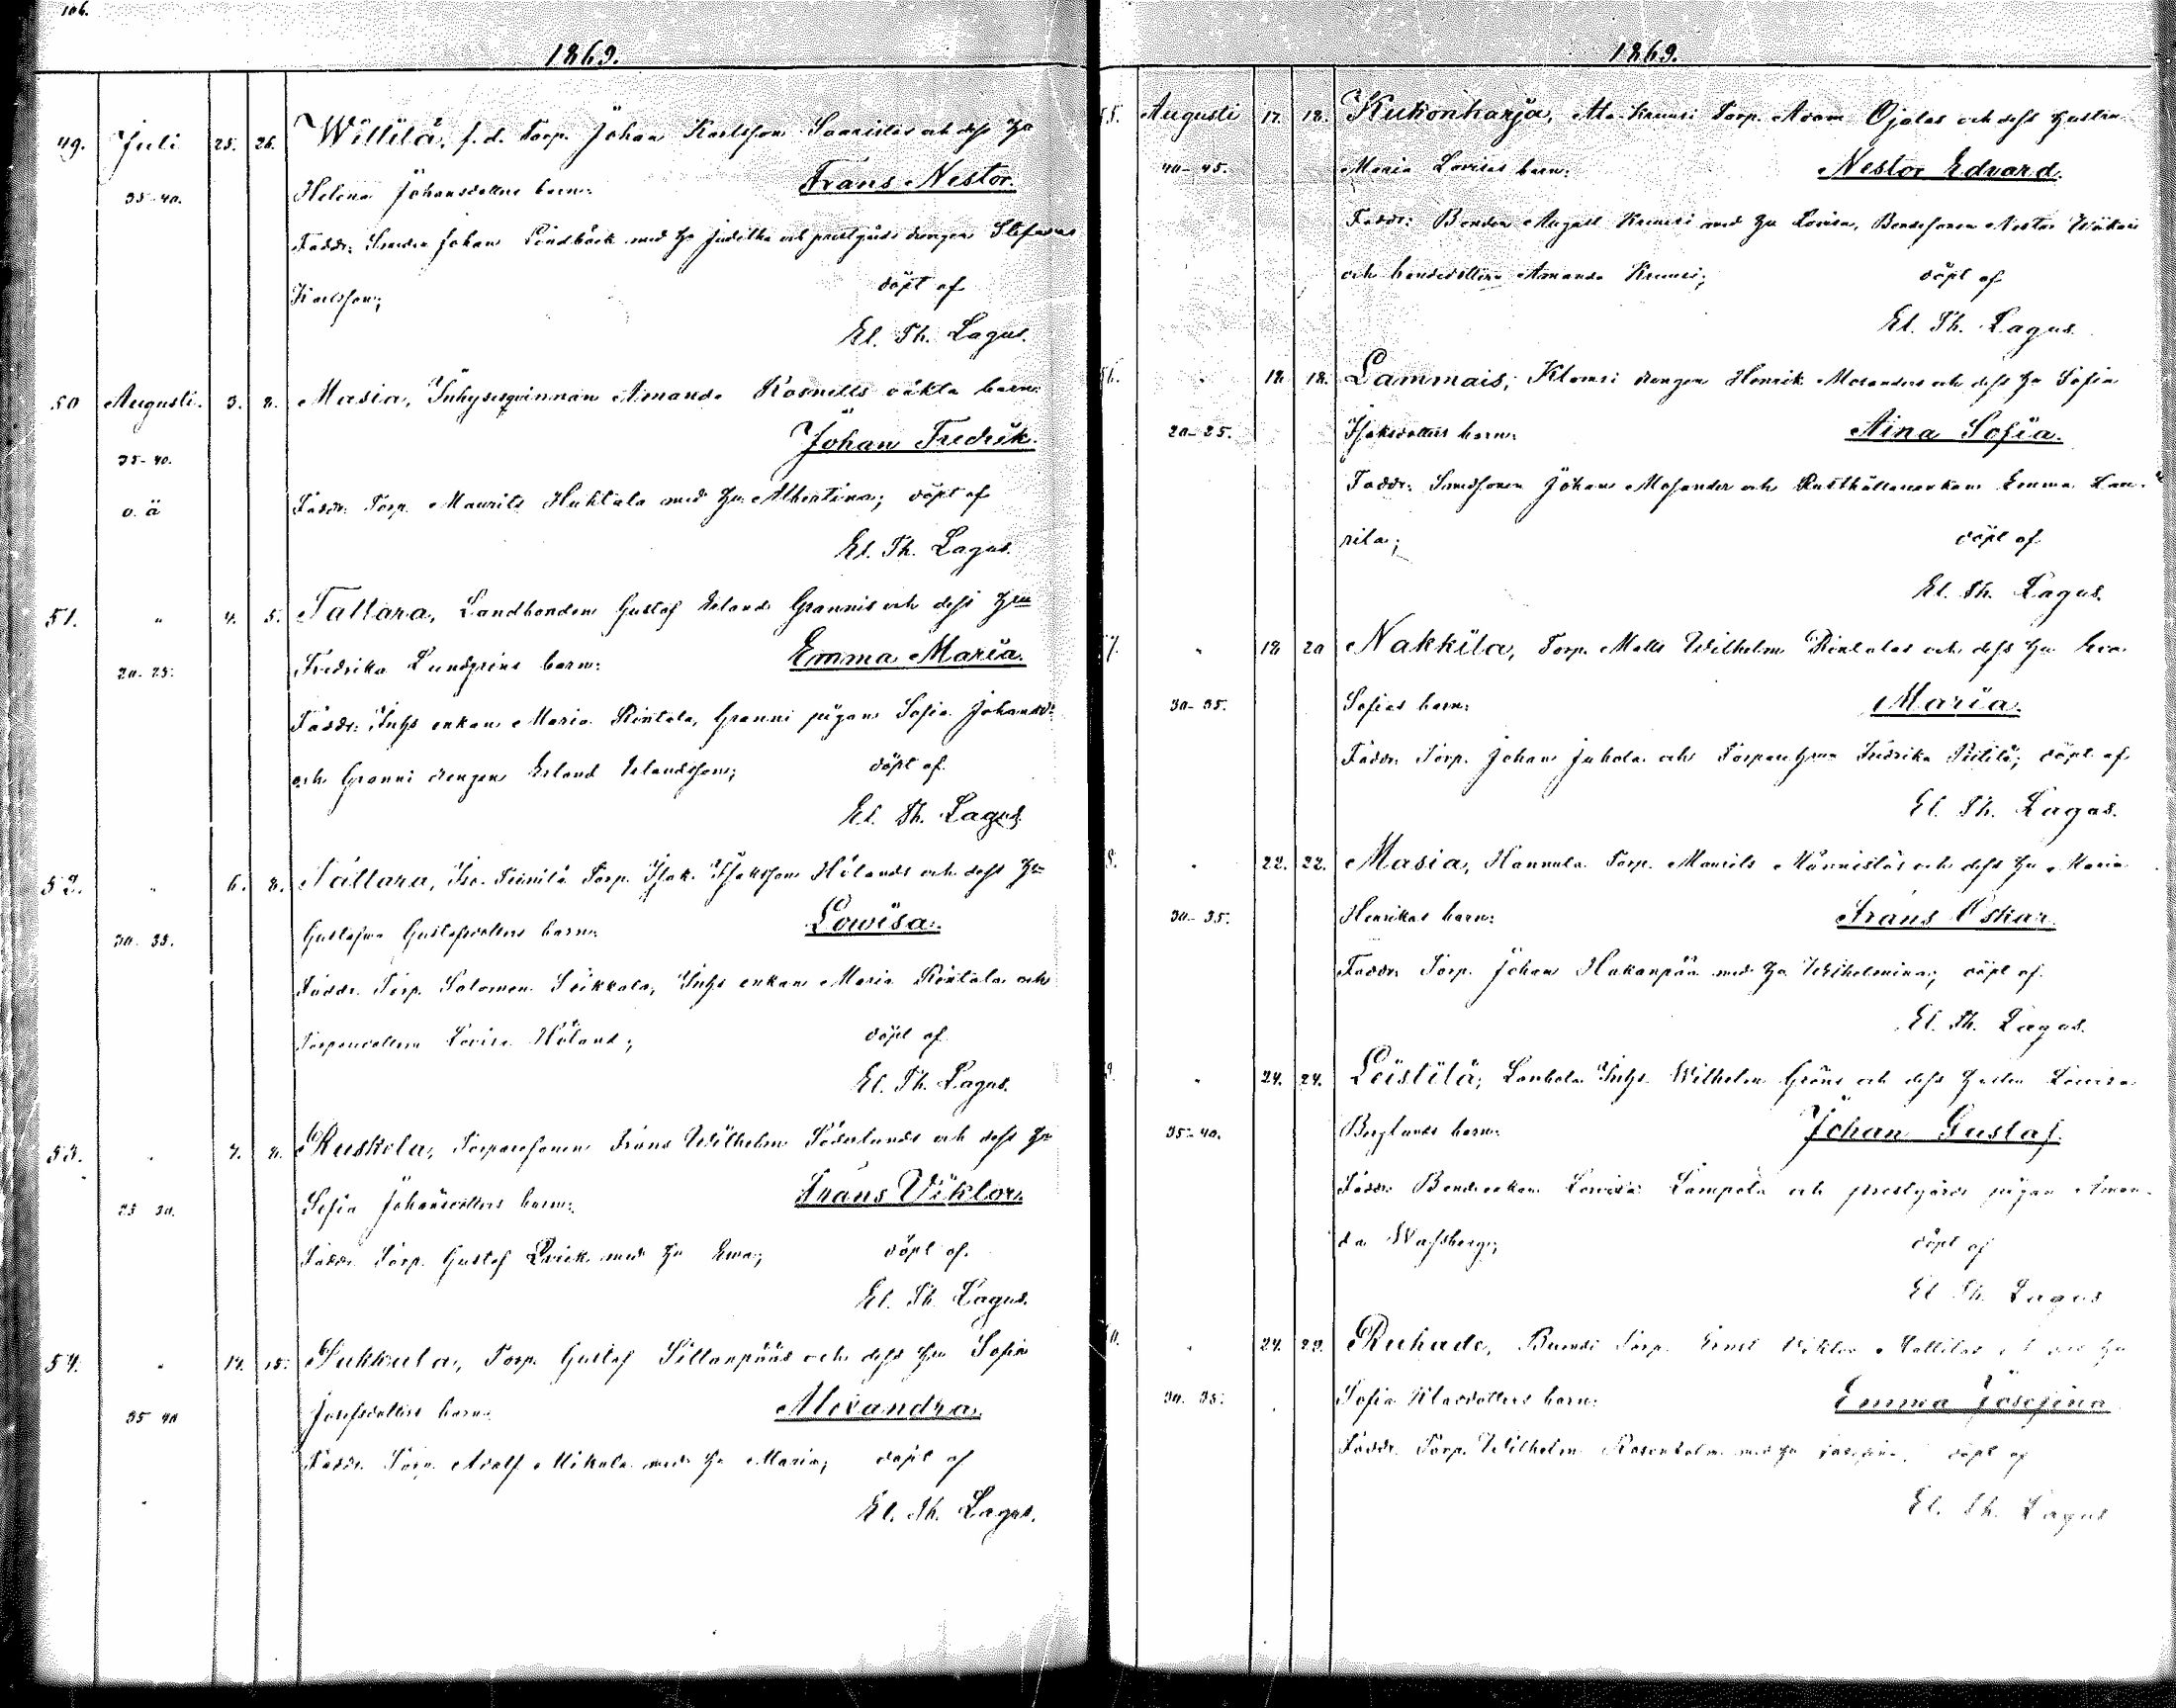 106.
1869.
49. Juli 25. 26. Willilä, f. d. Torp. Johan Karlsson Saaristos och dess hu
35-40. Helena Johansdotters barn: Frans Nestor.
Faddr: Smeden Johan Lindbäck med hu Juditha och prestgårds drengen Stefanus
Karlsson; döpt af
El. Th. Lagus.
50 Augusti. 3. 8. Masia, Inhysesqvinnan Amanda Rosnells oäkta barn:
Johan Fredrik.
35-40.
o. ä Faddr. Torp. Maurits Huhtala med hu Albertina; döpt af
El. Th. Lagus.
51. " 4. 5. Tattara, Landbonden Gustaf Erlands Grannis och dess hu
20-25. Fredrika Lundgrens barn: Emma Maria.
Faddr: Inhs enkan Maria Rintala, Granni pigan Sofia Johansd:
och Granni drengen Erland Erlandsson; döpt af
El. Th. Lagus.
52. " 6. 8. Tattara, Iso Torp. Isak Isaksson Hölands och dess hu
30-35. Gustafva Gustafsdotters barn: Lowisa.
Faddr. Torp. Salomon Seikkala, Inhs enkan Maria Rintala och
Torparedottern Lovisa Höland; döpt af
El. Th. Lagus.
53. " 7. 8. Ruskola, Torparesonen Frans Wilhelm Söderlunds och dess hu
25-30. Sofia Johansdotters barn: Frans Viktor.
Faddr. Torp. Gustaf Qvick med hu Ewa; döpt af
El. Th. Lagus.
54. " 14. 15. Sukkula, Torp. Gustaf Sillanpääs och dess hu Sofia
35-40 Josefsdotters barn: Alexandra.
Faddr. Torp. Adolf Mikola med hu Maria; döpt af
El. Th. Lagus.
1869.
55. Augusti 17. 18. Kukonharja, Ala-Kruusi Torp. Adam Ojalas och dess hustru
40-45. Maria Lovisas barn: Nestor Edvard.
Faddr: Bonden August Kruusi med hu Lovisa, Bondesonen Nestor
och bondedottern Amanda Kruusi; döpt af
El. Th. Lagus.
56. " 18. 18. Lammais, Klemsi drengen Henrik Mosanders och dess hu Sofia
20-25. Isaksdotters barn: Aina Sofia.
Faddr: Smedsonen Johan Mosander och Rusthållareenkan Emma Lau-
rila; döpt af
El. Th. Lagus.
57. " 18 20 Nakkila, Torp. Matts Wilhelm Rintalas och dess hu Eva
30-35. Sofias barn: Maria.
Faddr. Torp. Johan Juhola och Torparehrun Fredrika; döpt af
El. Th. Lagus.
58. " 22. 22. Masia, Hannula Torp. Maurits Männistös och dess hu Maria
30-35. Henrikas barn: Frans Oskar.
Faddr. Torp. Johan Hakanpää med hu Wilhelmina; döpt af
El. Th. Lagus.
59. " 24. 24. Leistilä, Lanhola Inhs. Wilhelm Gröns och dess hustru Lovisa
35-40. Berglunds barn: Johan Gustaf.
Faddr. Bondeenkan Lovisa Lampola och prestgårds pigan Aman-
da Wassberg; döpt af
El. Th. Lagus
60. " 24. 29. Ruhade, Torp. Ernst Viktor Mattilas och dess hu
30-35. Sofia Klasdotters barn: Emma Josefina
Faddr. Torp. Wilhelm Rosenholm med hu Josefina; döpt af
El. Th. Lagus